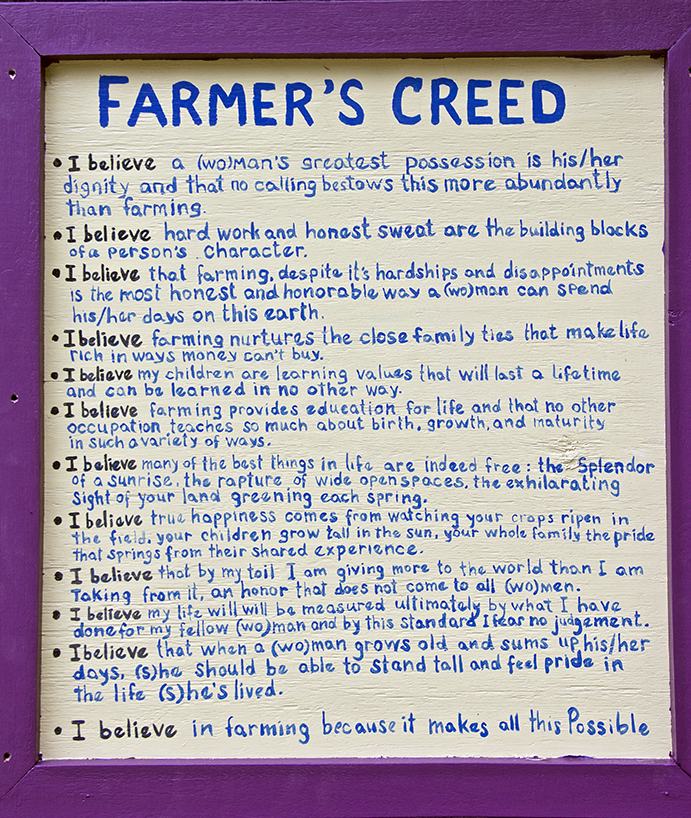 FARMER'S CREED
• I believe a (wo)man's greatest possession is his/her
dignity and that no calling bestows this more abundantly
than farming.
• I believe hard work and honest sweat are the building blocks
of a person's character.
• I believe that farming, despite it's hardships and disappointments
is the most honest and honorable way a (wo)man can spend
his/her days on this earth.
• I believe farming nurtures the close family ties that make life
rich in ways money can't buy.
• I believe my children are learning values that will last a lifetime
and can be learned in no other way.
• I believe farming provides education for life and that no other
occupation teaches so much about birth, growth, and maturity
in such a variety of ways.
• I believe many of the best things in life are indeed free: the Splendor
of a sunrise, the rapture of wide open spaces, the exhilarating
sight of your land greening each spring.
• I believe true happiness comes from watching your crops ripen in
the field, your children grow tall in the sun, your whole family the pride
that springs from their shared experience.
• I believe that by my toil I am giving more to the world than I am
Taking from it, an honor that does not come to all (wo)men.
• I believe my life will will be measured ultimately by what I have
done for my fellow (wo)man and by this standard I fear no judgement.
• I believe that when a (wo)man grows old and sums up his/her
days, (s)he should be able to stand tall and feel pride in
the life (s)he's lived.
• I believe in farming because it makes all this Possible